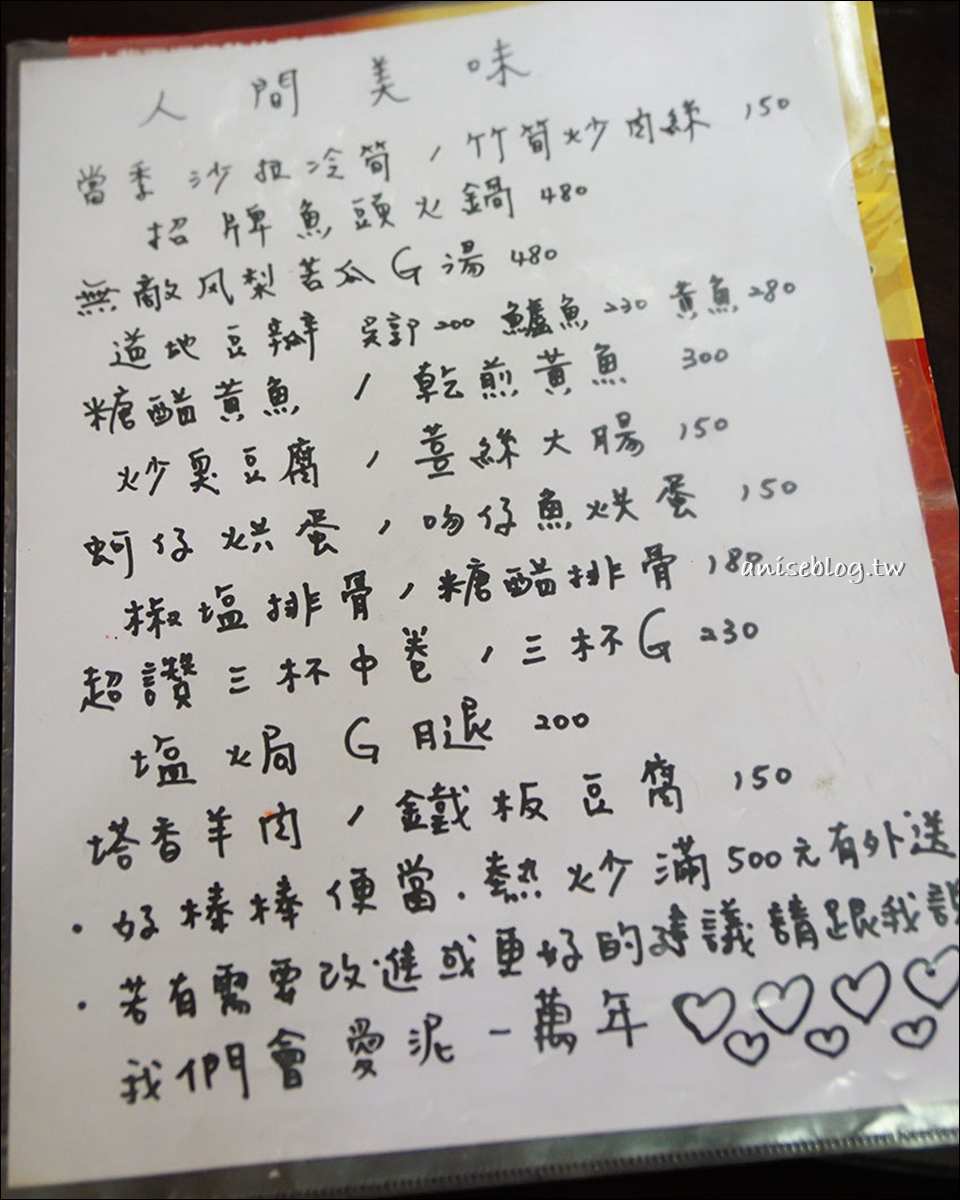 人間美味
當季沙拉冷筍，竹筍炒肉絲 150
招牌魚頭火鍋 480
無敵风梨苦瓜G湯 480
道地豆瓣 吳郭200 鱸魚230 黃魚280
糖醋黃魚，乾煎黃魚 300
炒臭豆腐，薑絲大腸 150
蚵仔烘蛋，吻仔魚烘蛋 150
aniseblog.tw
椒塩排骨，糖醋排骨 180
超讚三杯中卷，三杯G 230
塩焗G腿 200
塔香羊肉，鐵板豆腐 150
·好棒棒便當.熱炒滿500元有外送
·若有需要改進或更好的建議請跟我說
我們會愛泥一萬年♡♡♡♡♡♡♡